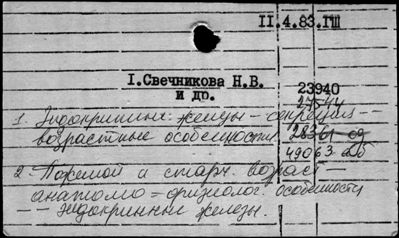 II.4.83.IШ
I.Свечникова Н.В.
и др.
23940
27544
1. Эндокринные железы – секреция
возрастные особенности 28361 од
49063 аб
2. Пожилой и старч. возраст –
анатомо – физиолог. особенности
— эндокринные железы.